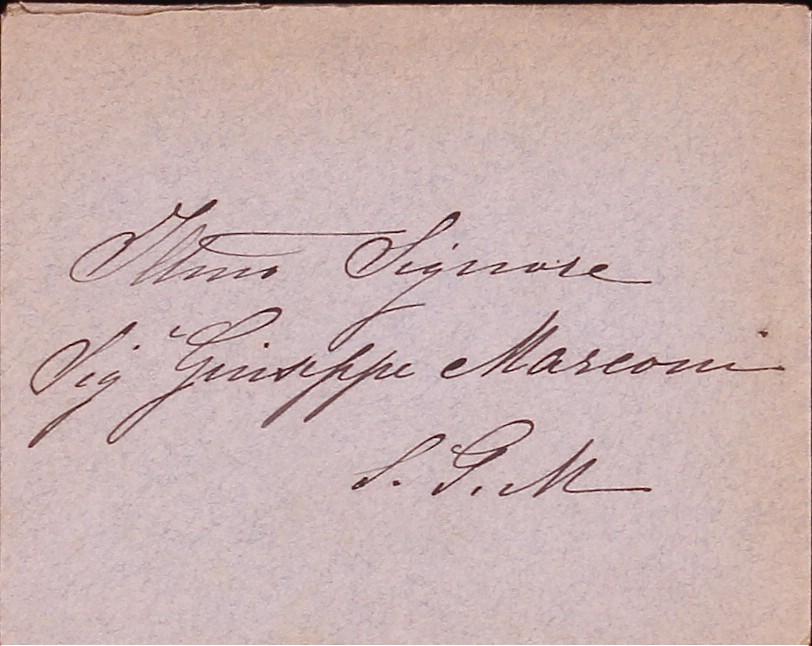 Illmo Signore
Sigr Giuseppe Marconi
S. G. M